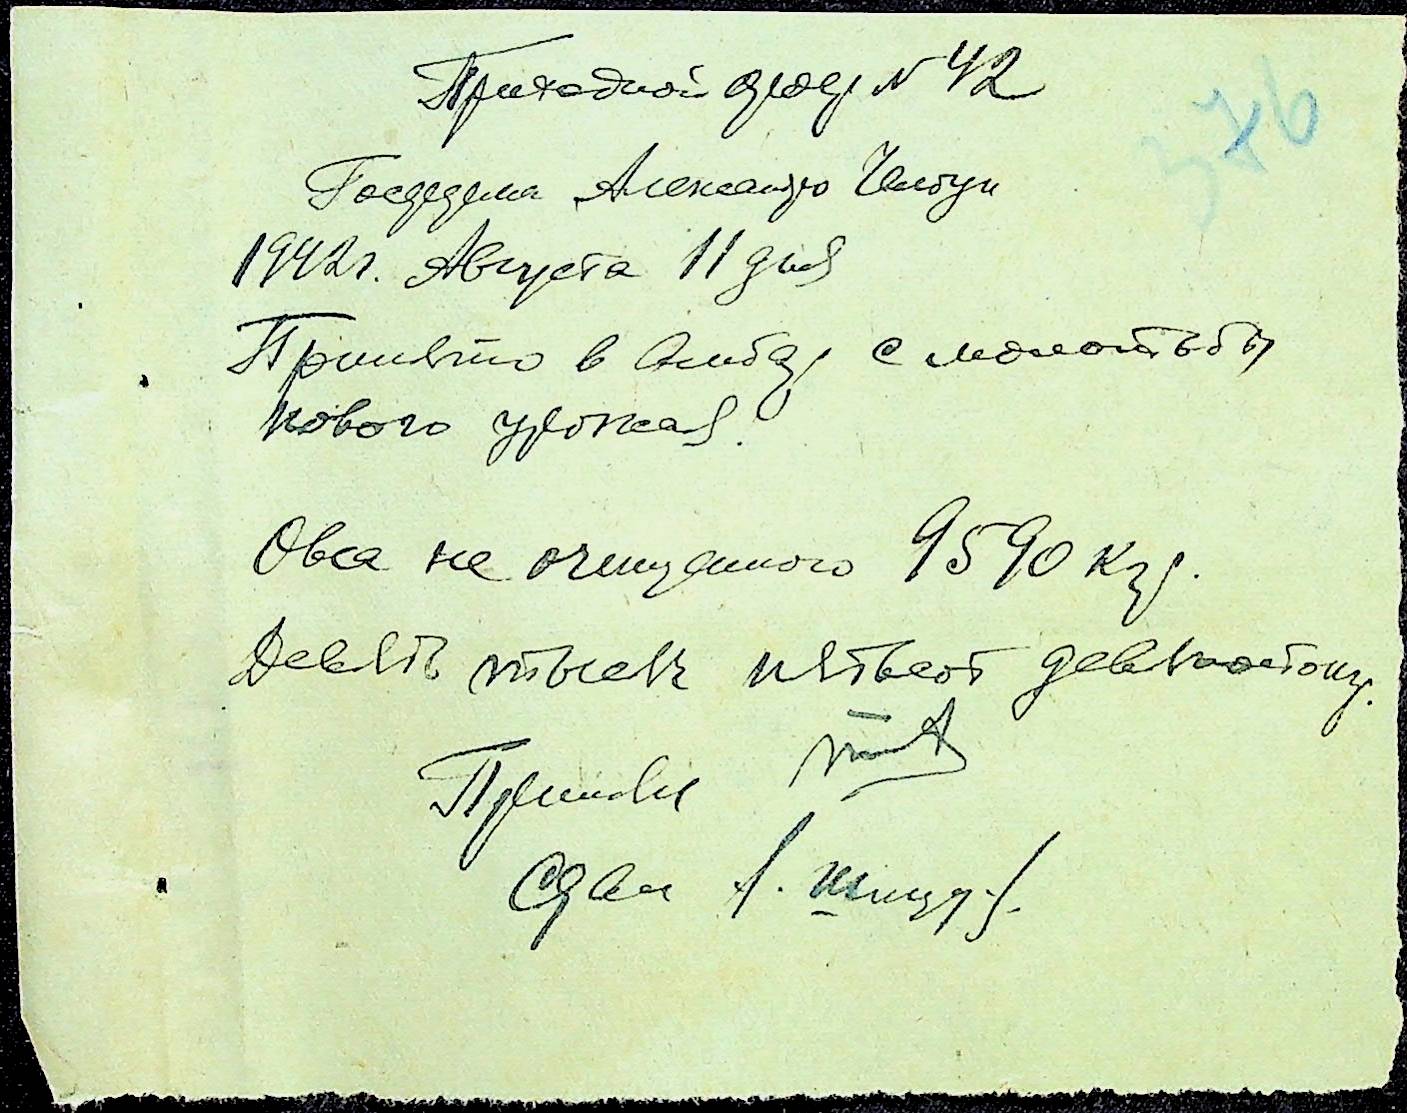 Приходной ордер № 42
376
Александро
1942 г. Августа 11 дня
Принято в амбар с молотьбы
нового урожая.
Овса не очищенного 9590 кгр.
Девять тысяч пятьсот девяносто кгр.
Принял
Сдал А.